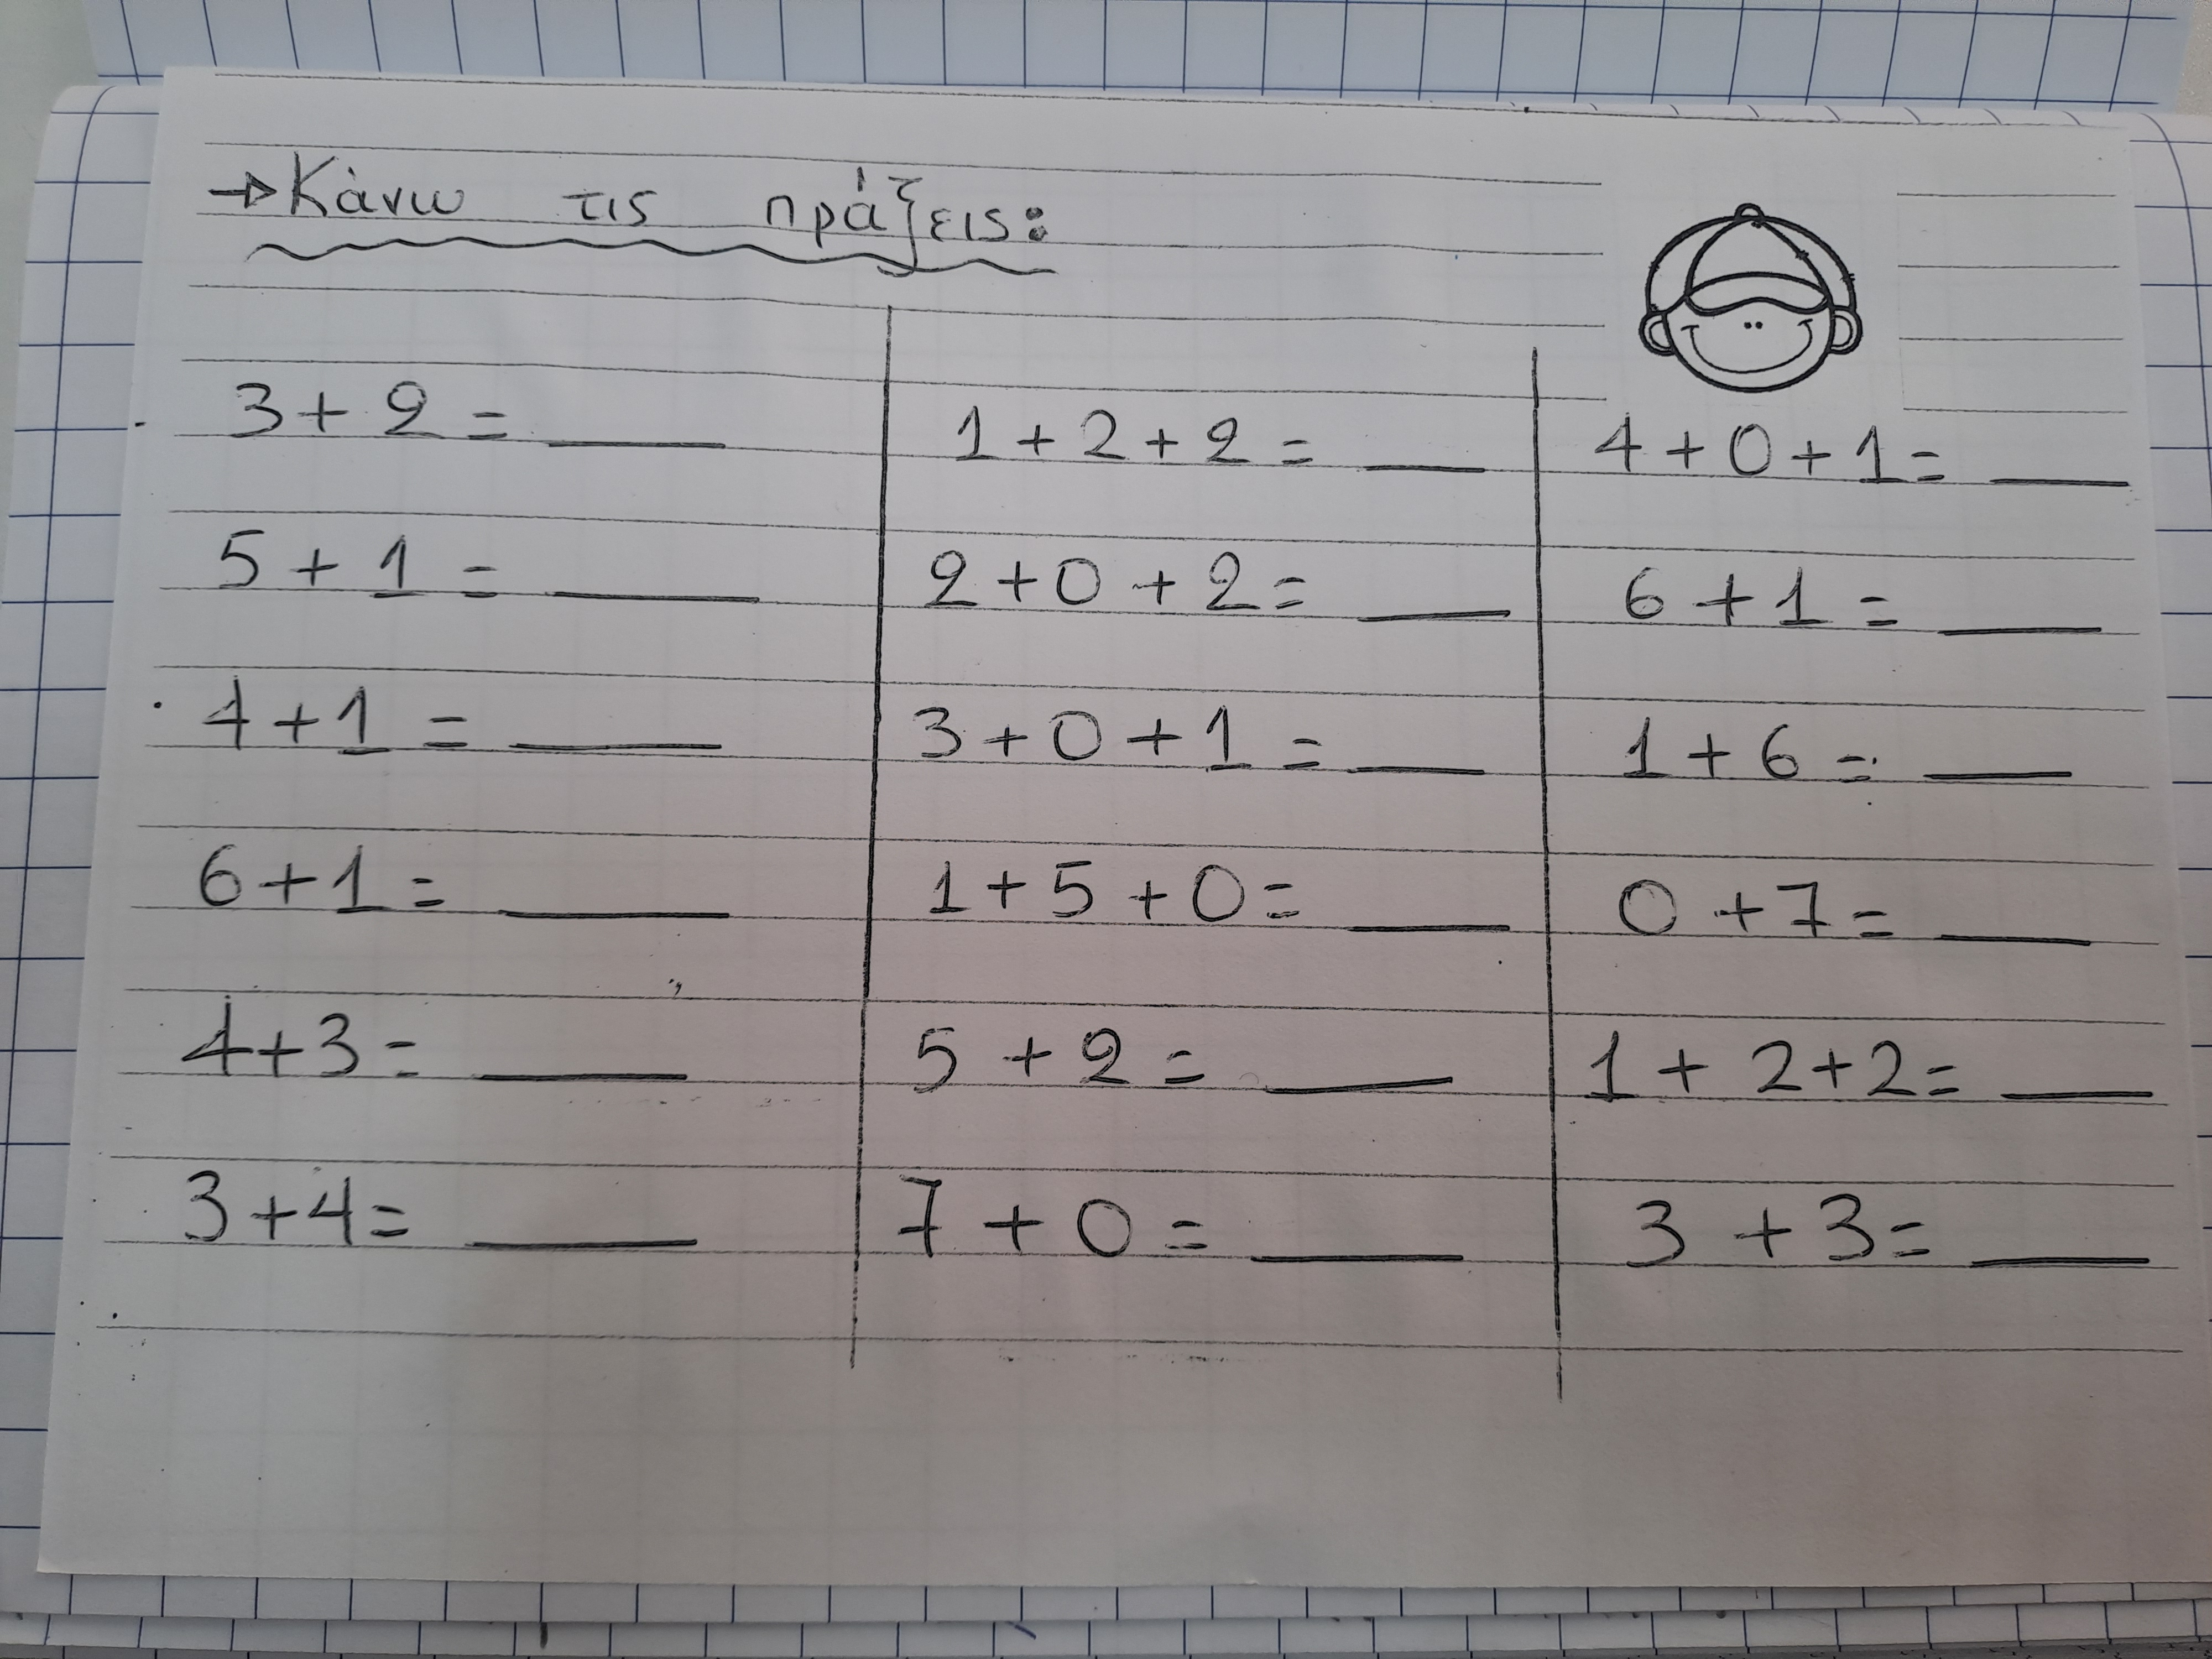 →Κάνω τις πράξεις:
3+2=____ 1+2+2=____ 4+0+1=____
5+1=____ 2+0+2=____ 6+1=____
4+1=____ 3+0+1=____ 1+6=____
6+1=____ 1+5+0=____ 0+7=____
4+3=____ 5+2=____ 1+2+2=____
3+4=____ 7+0=____ 3+3=____